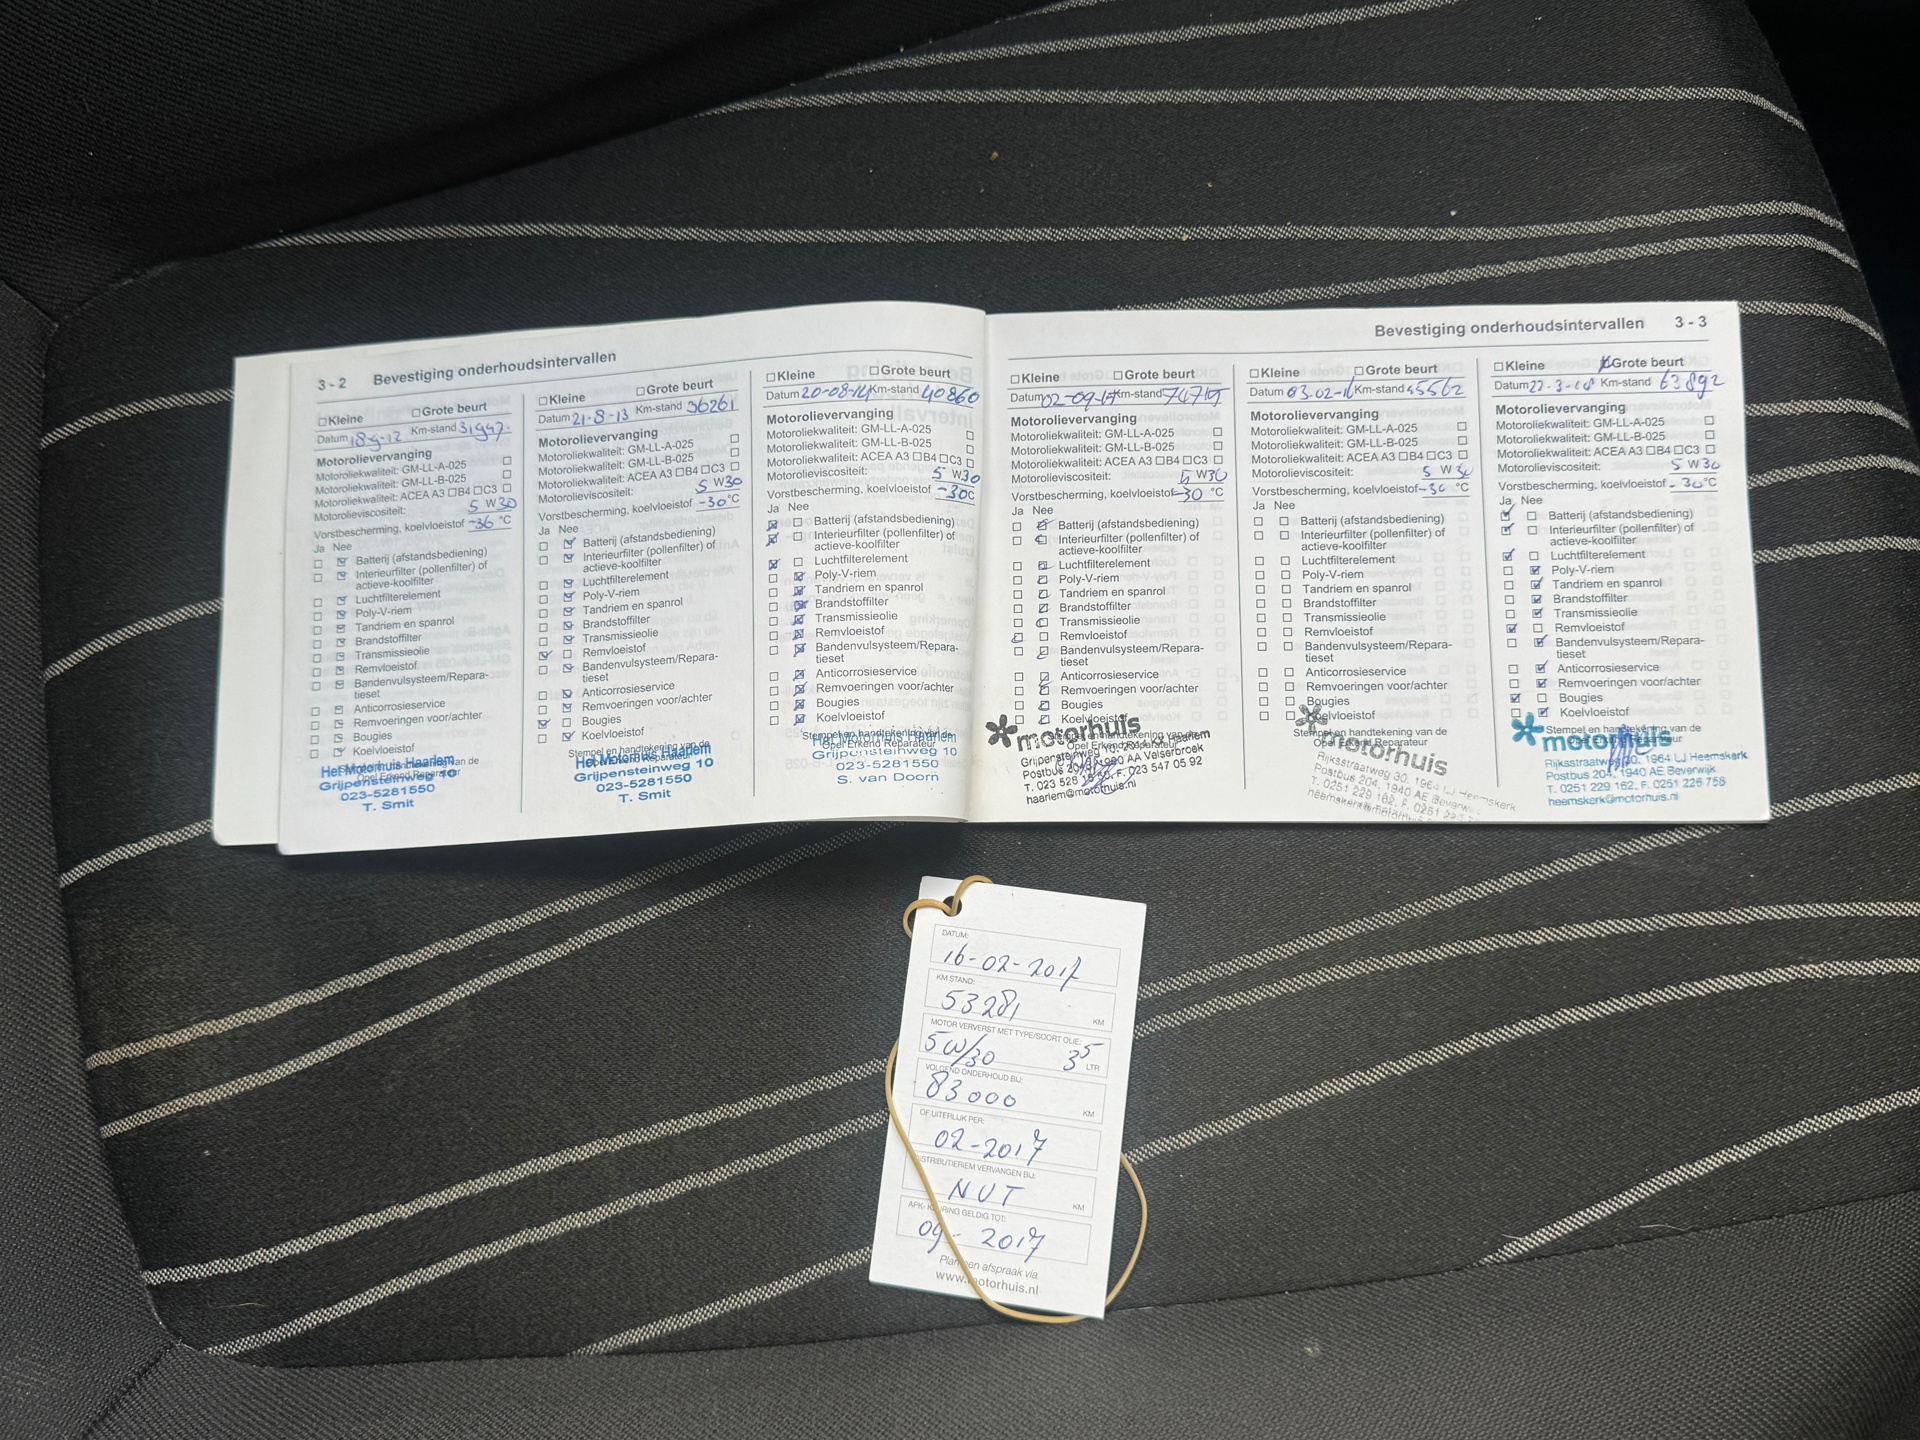 3 - 2 Bevestiging onderhoudsintervallen
☐Kleine ☐Grote beurt
Datum 18-9-12 Km-stand 31947.
Motorolievervanging
Motoroliekwaliteit: GM-LL-A-025 ☐
Motoroliekwaliteit: GM-LL-B-025 ☐
Motoroliekwaliteit: ACEA A3 ☐B4 ☐C3 ☐
Motorolieviscositeit: 5 W30
Vorstbescherming, koelvloeistof -36 °C
Ja Nee
Batterij (afstandsbediening)
Interieurfilter (pollenfilter) of
actieve-koolfilter
Luchtfilterelement
Poly-V-riem
Tandriem en spanrol
Brandstoffilter
Transmissieolie
Remvloeistof
Bandenvulsysteem/Repara-
tieset
Anticorrosieservice
Remvoeringen voor/achter
Bougies
Koelvloeistof
Het Motorhuis Haarlem
Opel Erkend Reparateur
Grijpensteinweg 10
023-5281550
T. Smit
☐Kleine ☐Grote beurt
Datum 21-8-13 Km-stand 36261
Motorolievervanging
Motoroliekwaliteit: GM-LL-A-025 ☐
Motoroliekwaliteit: GM-LL-B-025 ☐
Motoroliekwaliteit: ACEA A3 ☐B4 ☐C3 ☐
Motorolieviscositeit: 5 W30
Vorstbescherming, koelvloeistof -30°C
Ja Nee
Batterij (afstandsbediening)
Interieurfilter (pollenfilter) of
actieve-koolfilter
Luchtfilterelement
Poly-V-riem
Tandriem en spanrol
Brandstoffilter
Transmissieolie
Remvloeistof
Bandenvulsysteem/Repara-
tieset
Anticorrosieservice
Remvoeringen voor/achter
Bougies
Koelvloeistof
Stempel en handtekening van de
Opel Erkend Reparateur
Het Motorhuis Haarlem
Grijpensteinweg 10
023-5281550
T. Smit
☐Kleine ☐Grote beurt
Datum 20-08-14 Km-stand 40860
Motorolievervanging
Motoroliekwaliteit: GM-LL-A-025 ☐
Motoroliekwaliteit: GM-LL-B-025 ☐
Motoroliekwaliteit: ACEA A3 ☐B4 ☐C3 ☐
Motorolieviscositeit: 5 W30
Vorstbescherming, koelvloeistof -30°C
Ja Nee
Batterij (afstandsbediening)
Interieurfilter (pollenfilter) of
actieve-koolfilter
Luchtfilterelement
Poly-V-riem
Tandriem en spanrol
Brandstoffilter
Transmissieolie
Remvloeistof
Bandenvulsysteem/Repara-
tieset
Anticorrosieservice
Remvoeringen voor/achter
Bougies
Koelvloeistof
Stempel en handtekening van de
Opel Erkend Reparateur
Het Motorhuis Haarlem
Grijpensteinweg 10
023-5281550
S. van Doorn
Bevestiging onderhoudsintervallen 3 - 3
☐Kleine ☐Grote beurt
Datum Km-stand
Motorolievervanging
Motoroliekwaliteit: GM-LL-A-025 ☐
Motoroliekwaliteit: GM-LL-B-025 ☐
Motoroliekwaliteit: ACEA A3 ☐B4 ☐C3 ☐
Motorolieviscositeit: 5 W30
Vorstbescherming, koelvloeistof -30 °C
Ja Nee
Batterij (afstandsbediening)
Interieurfilter (pollenfilter) of
actieve-koolfilter
Luchtfilterelement
Poly-V-riem
Tandriem en spanrol
Brandstoffilter
Transmissieolie
Remvloeistof
Bandenvulsysteem/Repara-
tieset
Anticorrosieservice
Remvoeringen voor/achter
Bougies
Koelvloeistof
motorhuis
Opel Erkend Reparateur
Grijpensteinweg 10, Haarlem
Postbus 1980 AA Velserbroek
F. 023 547 05 92
haarlem@motorhuis.nl
☐Kleine ☐Grote beurt
Datum 03-02-16 Km-stand 45562
Motorolievervanging
Motoroliekwaliteit: GM-LL-A-025 ☐
Motoroliekwaliteit: GM-LL-B-025 ☐
Motoroliekwaliteit: ACEA A3 ☐B4 ☐C3 ☐
Motorolieviscositeit: 5 W30
Vorstbescherming, koelvloeistof -30 °C
Ja Nee
Batterij (afstandsbediening)
Interieurfilter (pollenfilter) of
actieve-koolfilter
Luchtfilterelement
Poly-V-riem
Tandriem en spanrol
Brandstoffilter
Transmissieolie
Remvloeistof
Bandenvulsysteem/Repara-
tieset
Anticorrosieservice
Remvoeringen voor/achter
Bougies
Koelvloeistof
Stempel en handtekening van de
Opel Erkend Reparateur
motorhuis
Rijksstraatweg 30, 1964 LJ Heemskerk
Postbus 204, 1940 AE Beverwijk
T. 0251 229 162, F. 0251
heemskerk@motorhuis
☐Kleine ☐Grote beurt
Datum 22-3-18 Km-stand 63892
Motorolievervanging
Motoroliekwaliteit: GM-LL-A-025 ☐
Motoroliekwaliteit: GM-LL-B-025 ☐
Motoroliekwaliteit: ACEA A3 ☐B4 ☐C3 ☐
Motorolieviscositeit: 5 W30
Vorstbescherming, koelvloeistof -30°C
Ja Nee
Batterij (afstandsbediening)
Interieurfilter (pollenfilter) of
actieve-koolfilter
Luchtfilterelement
Poly-V-riem
Tandriem en spanrol
Brandstoffilter
Transmissieolie
Remvloeistof
Bandenvulsysteem/Repara-
tieset
Anticorrosieservice
Remvoeringen voor/achter
Bougies
Koelvloeistof
Stempel en handtekening van de
motorhuis
Rijksstraatweg 30, 1964 LJ Heemskerk
Postbus 204, 1940 AE Beverwijk
T. 0251 229 162, F. 0251 226 758
heemskerk@motorhuis.nl
DATUM:
16-02-2017
KM STAND:
53281 KM
MOTOR VERVERST MET TYPE/SOORT OLIE:
5W/30 3⁵ LTR
VOLGEND ONDERHOUD BIJ:
83000 KM
OF UITERLIJK PER:
02-2017
DISTRIBUTIERIEM VERVANGEN BIJ:
NVT KM
APK-KEURING GELDIG TOT:
09-2017
Plan een afspraak via
www.motorhuis.nl